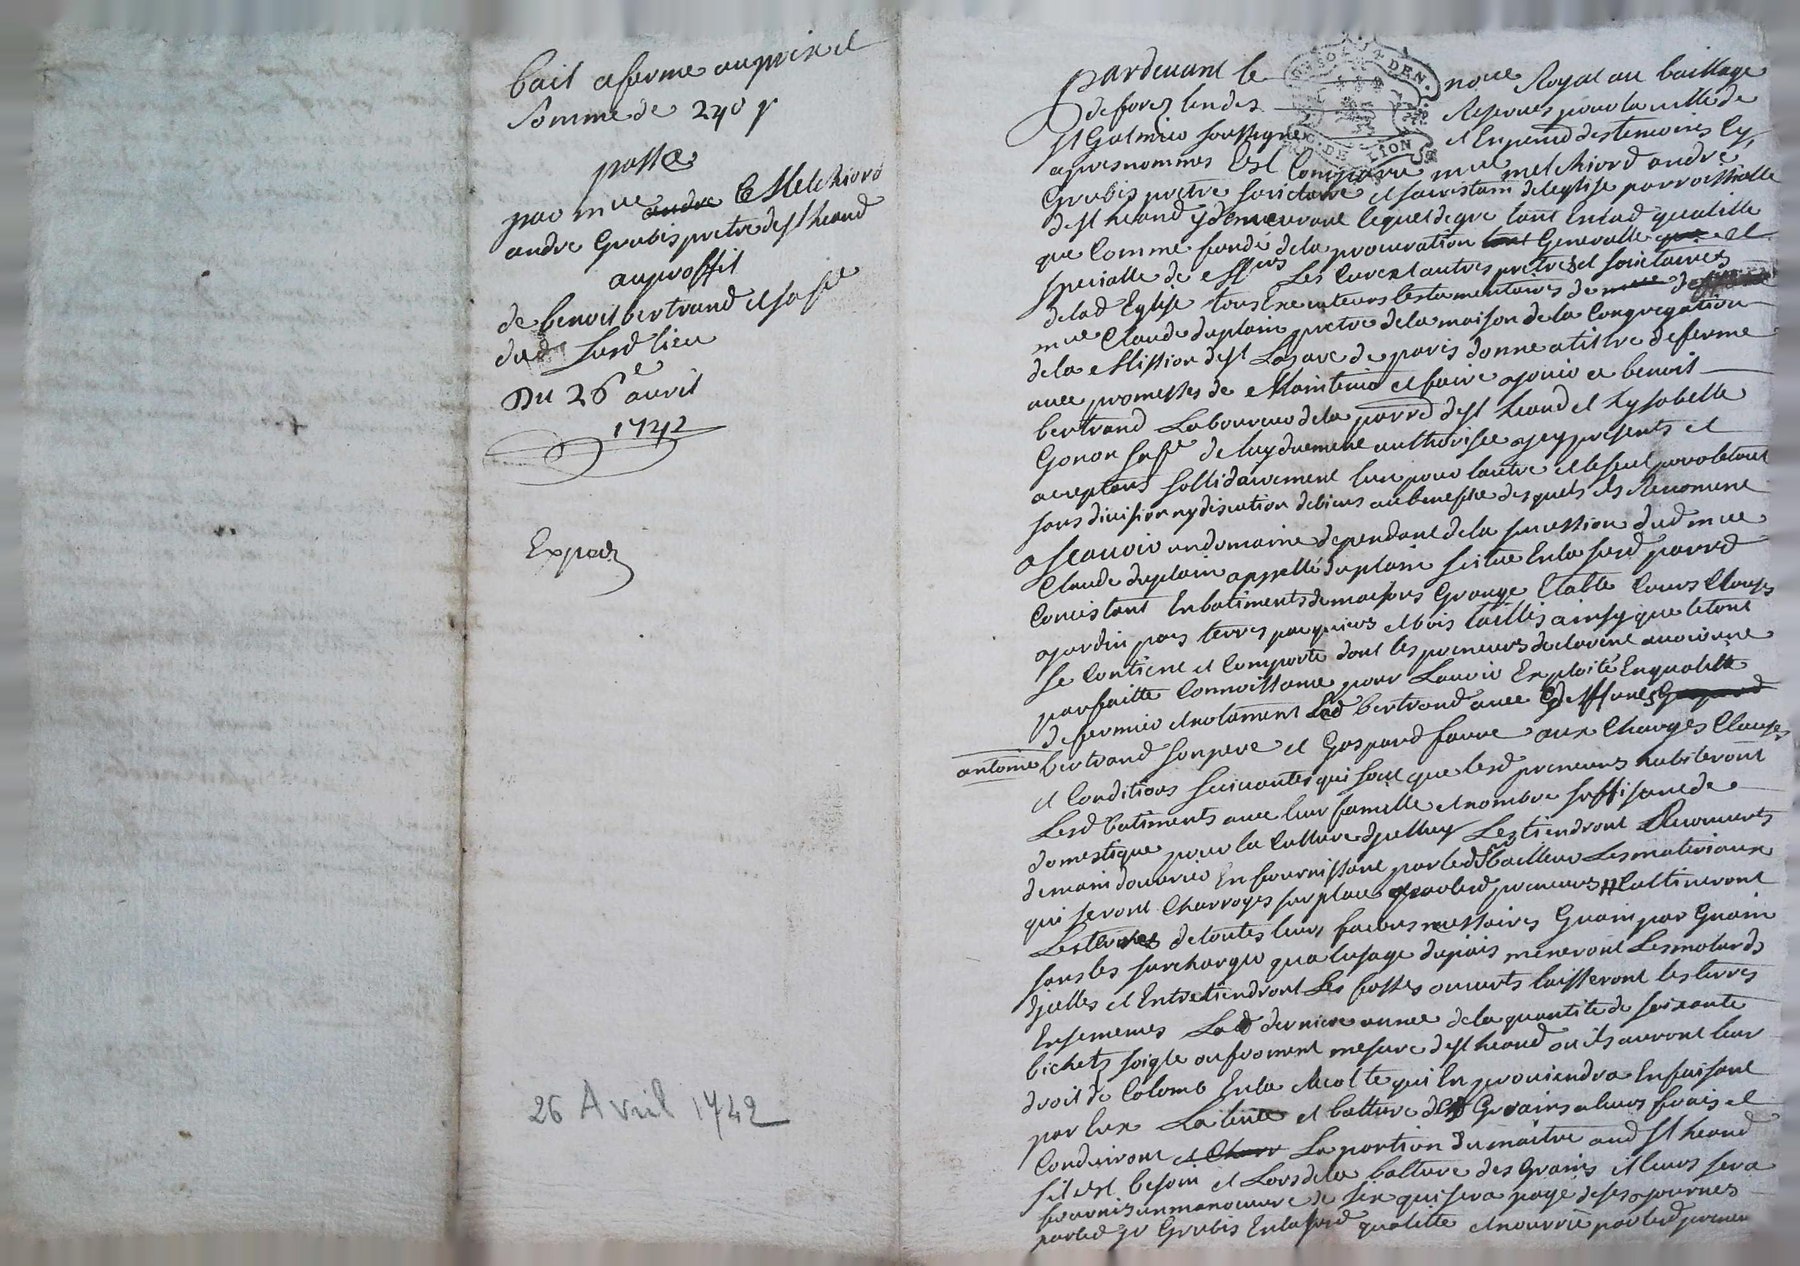 bail a ferme au prix et
Somme de 240 #
passé
par mre andre & Melchiord
andre Grubis pretre de st heand
au proffit
de benoit bertrand et sa fe
dud susd lieu
Du 26e avril
1742
Exped
26 Avril 1742
pardevant le nore Royal au bailliage
de forez lun des Reserves pour la ville de
st Galmier soussigné et En presence des temoins Cy
apres nommes Est Comparu mre melchiord andre
Grubis pretre societaire et sacristain de leglise parroissialle
de st heand y demeurant lequel de gre tant En lad qualitte
que Comme fondé de la procuration Generalle et
specialle de Mrs Les Curé et autres pretres et societaires
de lad Eglise tous Executeurs testamentaires de
mre Claude duplain pretre de la maison de la Congregation
de la Mission de st Lasare de paris donne a tiltre de ferme
avec promesses de Maintenir et faire jouir a benoit
bertrand Laboureur de la parre de st heand et Izabelle
Gonon sa fe de luy duement authorisee icy presents et
aceptans sollidairement lun pour lautre et le seul pour le tout
sans division ny discution de biens au benefice desquels ils Renoncent
a scavoir un domaine dependant de la succession dud mre
Claude duplain appellé duplain scitue En la susd parre
Concistant En batiments de maisons Grange Etable Cours Clauses
jardin prés terres paquiers et bois taillis ainsy que le tout
se Contient et Comporte dont les preneurs declarent avoir une
parfaitte Connoissance pour Lavoir Exploité En qualitte
de fermier et notament Led bertrand avec
antoine bertrand son pere et Gaspard favre aux Charges Clauses
et Conditions suivantes qui sont que lesd preneurs habiteront
Lesd batiments avec leur famille et nombre suffisant de
domestique pour la Culture djcelluy Les tiendront Recouverts
de main douvrier En fournissant par led sr bailleur Les materiaux
qui seront Charroyes sur place par lesd preneurs Cultiveront
Les terres de toutes leurs facons necessaires Guain par Guain
sans les surcharger qua lusage du pais meneront Les motards
djcelles et Entretiendront Les fosses ouverts laisseront les terres
Ensemences La derniere annee de la quantite de soixante
bichets soigle ou froment mesure de st heand ou ils auront leur
droit de Colomb En la Recolte qui En proviendra En faisant
par Eux La levée et batture des Grains a leurs frais et
Conduiront La portion du maitre aud st heand
sil est besoin et Lors de la batture des Grains il leurs sera
fourni un manoeuvre de six qui sera payé de ses journes
par led sr Grubis En lasusd qualitte et nourrie par lesd preneurs